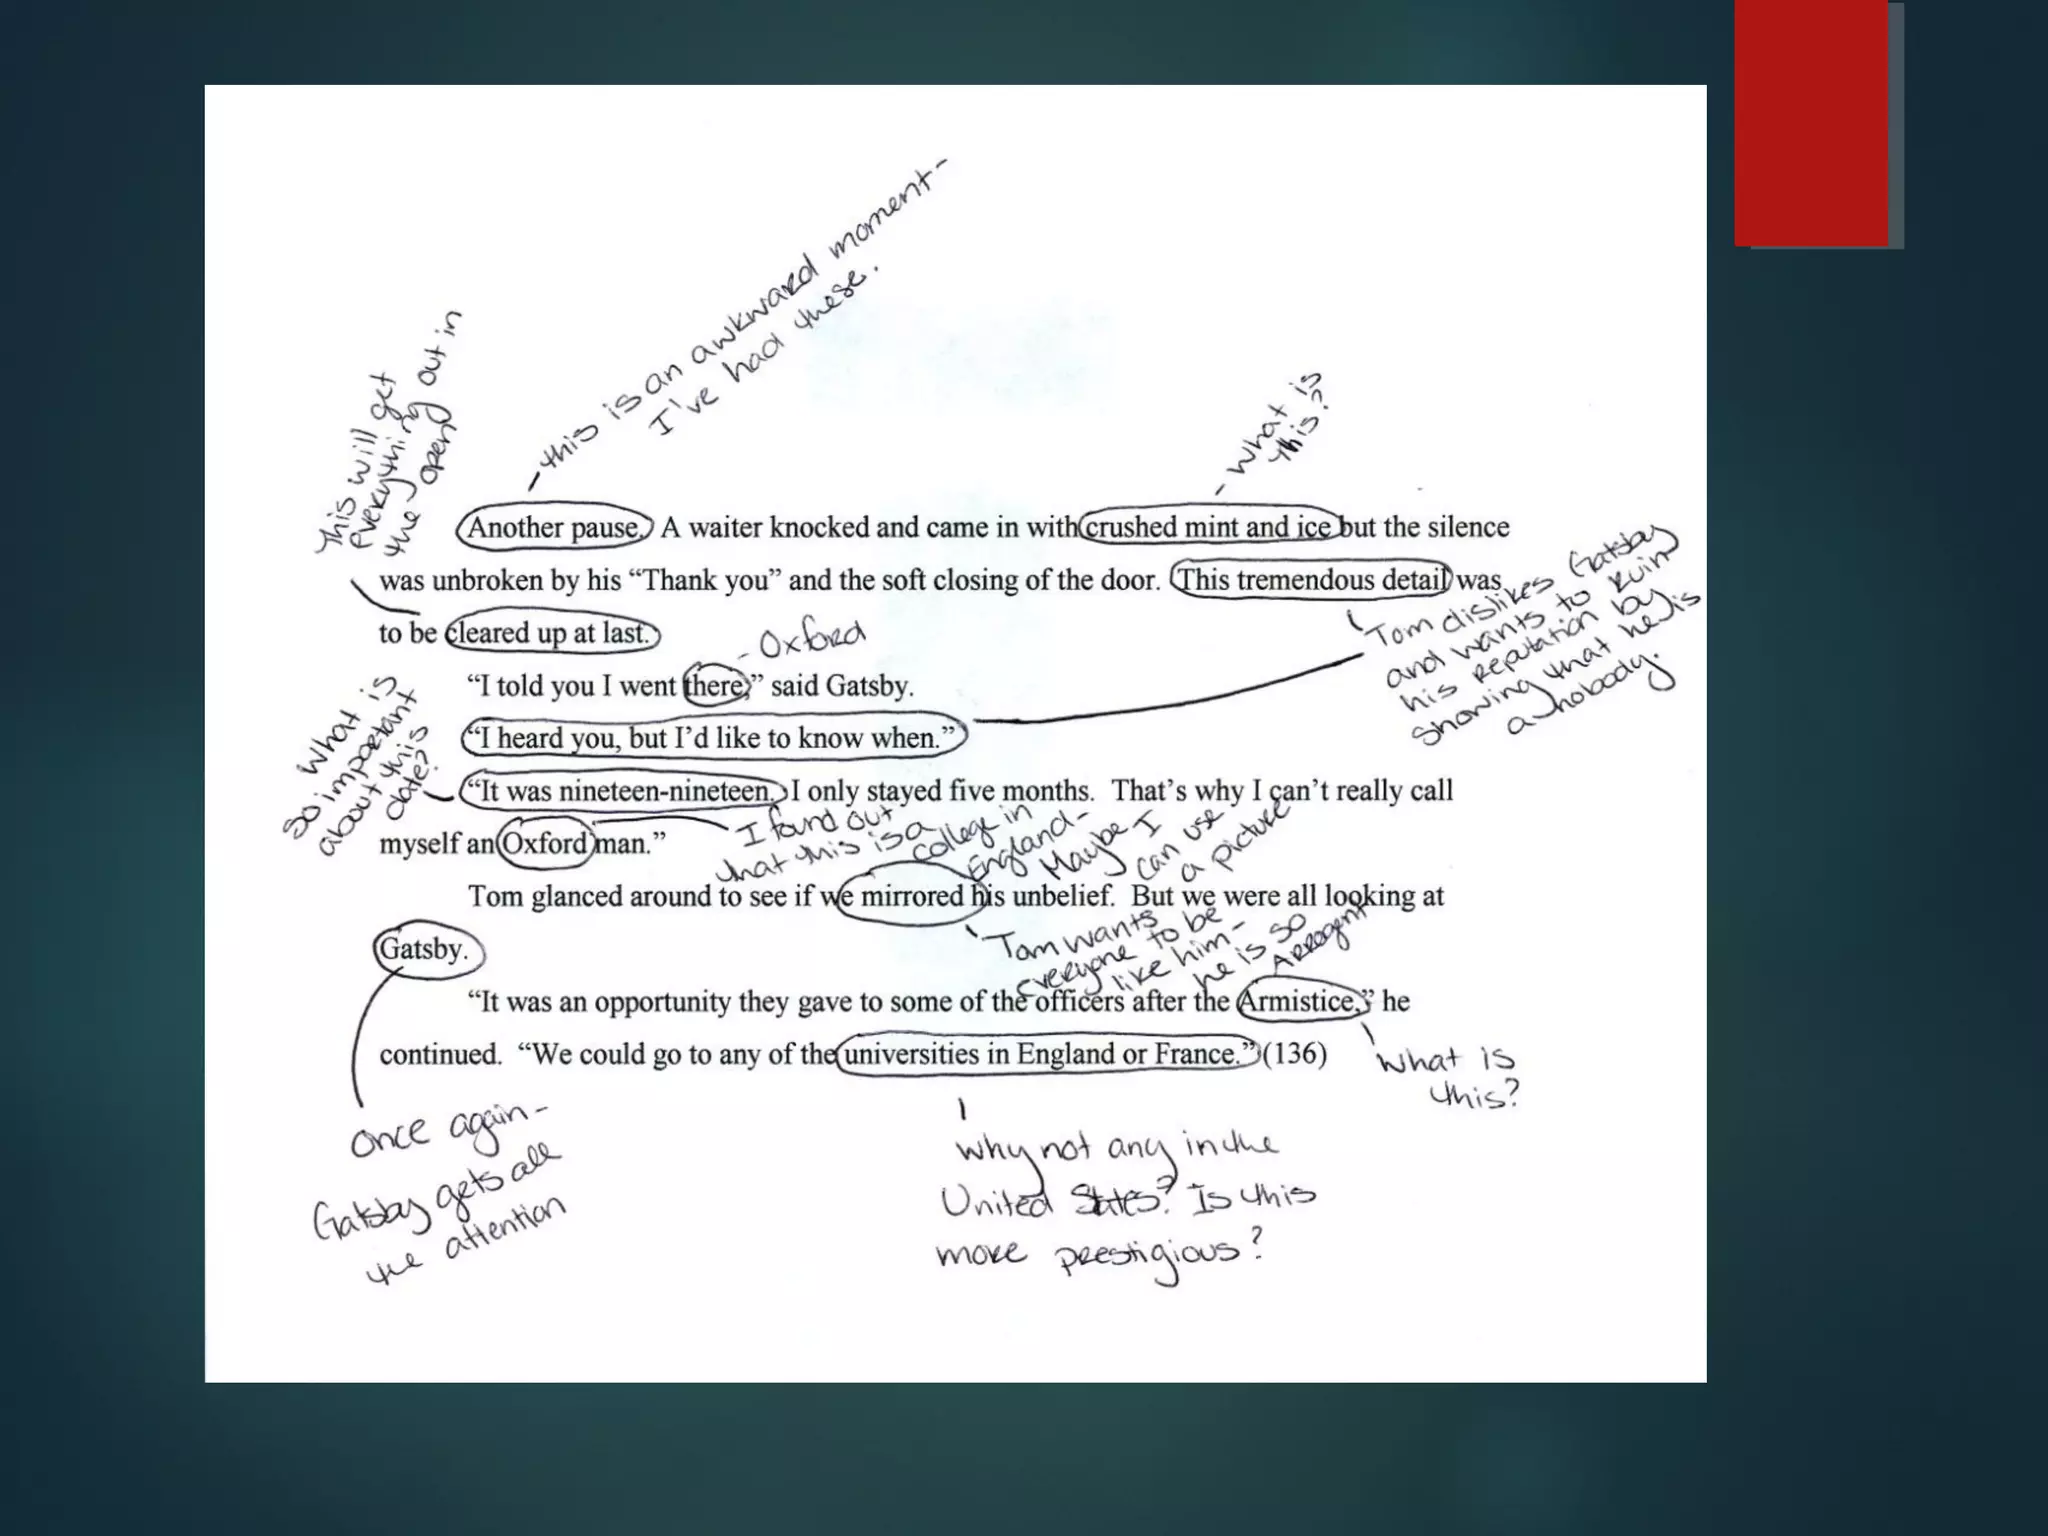 this is an awkward moment-
I've had these.
This will get
everything out in
the open
- What is
this?
Another pause. A waiter knocked and came in with crushed mint and ice but the silence
was unbroken by his “Thank you” and the soft closing of the door. This tremendous detail was
to be cleared up at last.
Tom dislikes Gatsby
and wants to ruin
his reputation by
showing that he is
a nobody.
- Oxford
“I told you I went there,” said Gatsby.
“I heard you, but I’d like to know when.”
What is
so important
about this
date?
“It was nineteen-nineteen. I only stayed five months. That’s why I can’t really call
myself an Oxford man.”
I found out
that this is a
college in
England-
Maybe I
can use
a picture
Tom glanced around to see if we mirrored his unbelief. But we were all looking at
Gatsby.
Tom wants
everyone to be
like him-
he is so
Arrogent
“It was an opportunity they gave to some of the officers after the Armistice,” he
continued. “We could go to any of the universities in England or France.” (136)
What is
this?
once again-
Gatsby gets all
the attention
Why not any in the
United States? Is this
more prestigious?